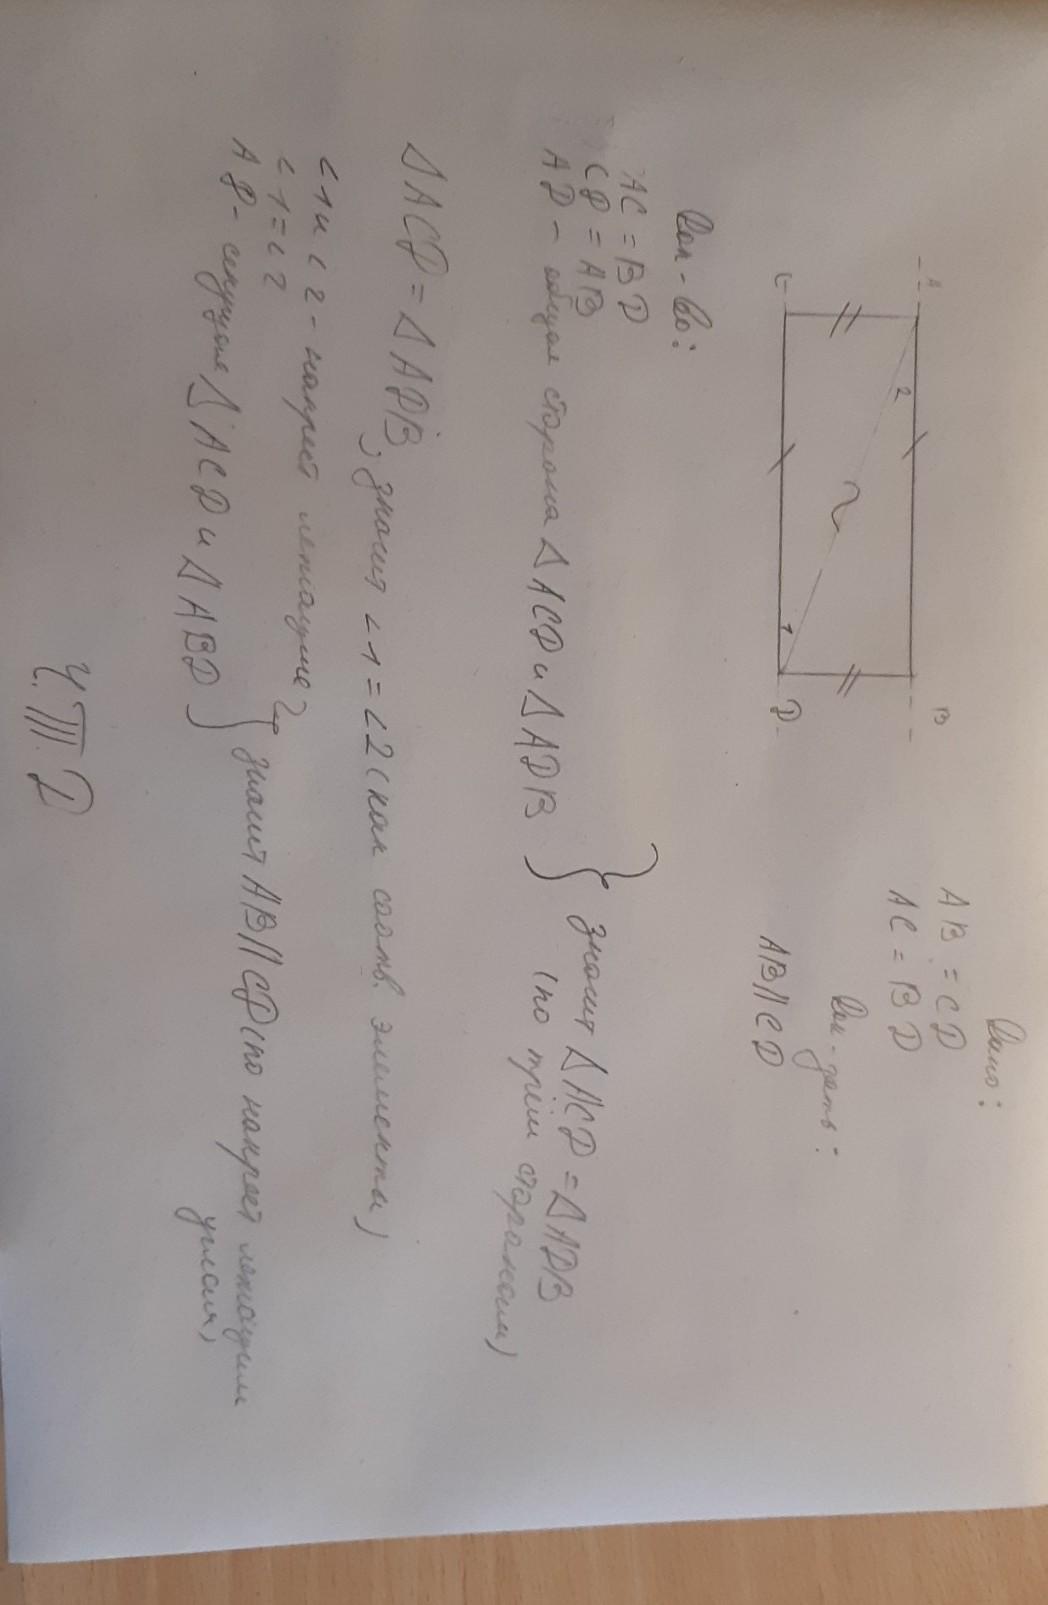 Дано:
AB = CD
AC = BD
Док-зать:
AB || CD
A
B
C
D
2
1
Док-во:
AC = BD
CD = AB
AD - общая сторона Δ ACD и Δ ADB
значит Δ ACD = Δ ADB
(по трём сторонам)
Δ ACD = Δ ADB, значит <1 = <2 (как соотв. элементы)
<1 и <2 - накрест лежащие
<1 = <2
AD - секущая Δ ACD и Δ ABD
значит AB || CD (по накрест лежащим
углам)
Ч.Т.Д